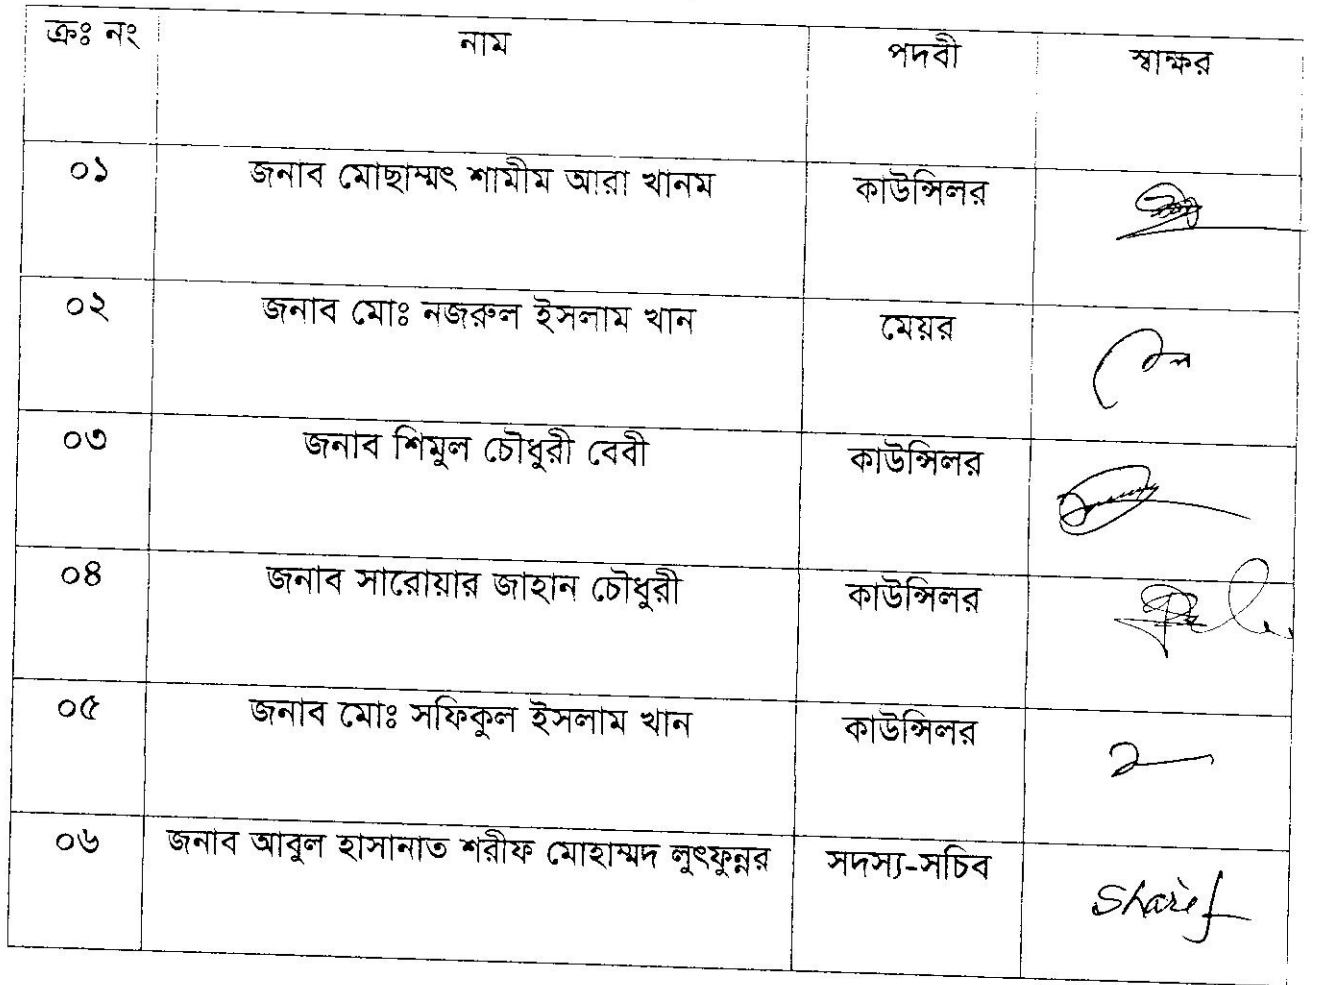 ক্রঃ নং নাম পদবী স্বাক্ষর
০১ জনাব মোছাম্মৎ শামীম আরা খানম কাউন্সিলর
০২ জনাব মোঃ নজরুল ইসলাম খান মেয়র
০৩ জনাব শিমুল চৌধুরী বেবী কাউন্সিলর
০৪ জনাব সারোয়ার জাহান চৌধুরী কাউন্সিলর
০৫ জনাব মোঃ সফিকুল ইসলাম খান কাউন্সিলর
০৬ জনাব আবুল হাসানাত শরীফ মোহাম্মদ লুৎফুন্নর সদস্য-সচিব Sharif